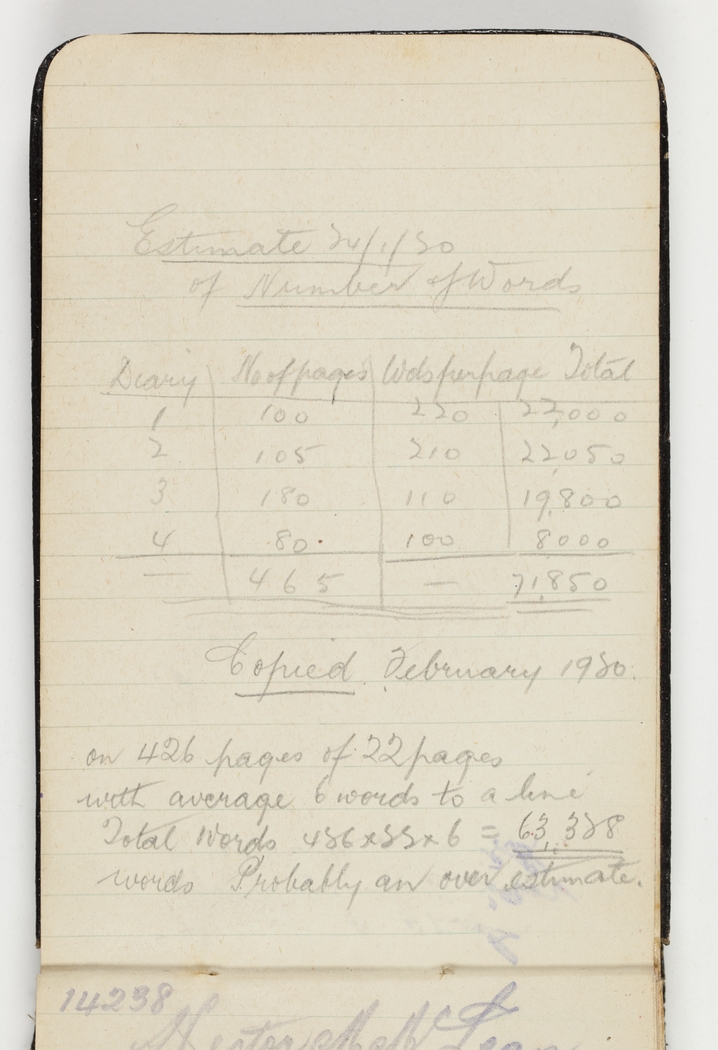 Estimate 24/1/30
of Number of Words
Diary No of pages Wds per page Total
1 100 220 22,000
2 105 210 22,050
3 180 110 19,800
4 80. 100 8000
— 465 — 71,850
Copied February 1930.
on 426 pages of 22 pages
with average 6 words to a line
Total Words x x 6 =
words Probably an over estimate.
14238
Hector Mc Lean